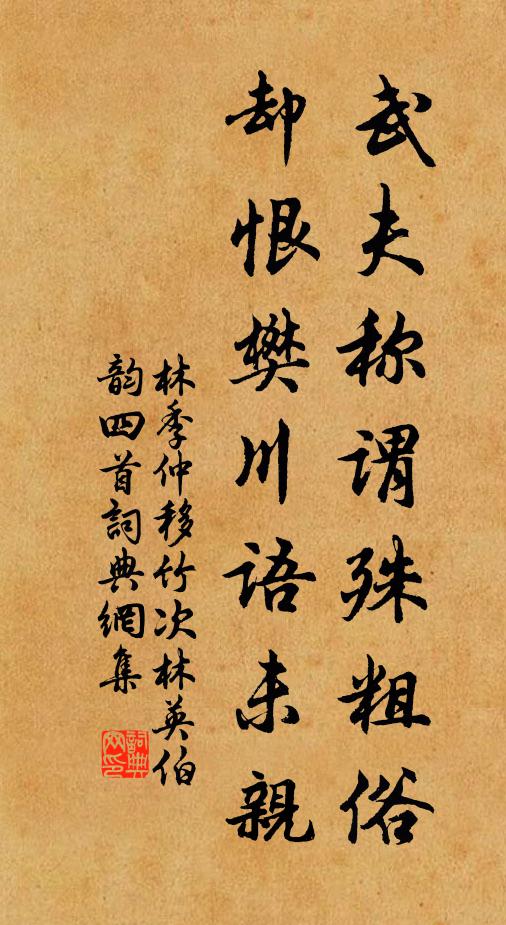 武夫称謂殊粗俗
却恨樊川語未親
林季仲移竹次林英伯
韵四首詞典網集
詞典
网印